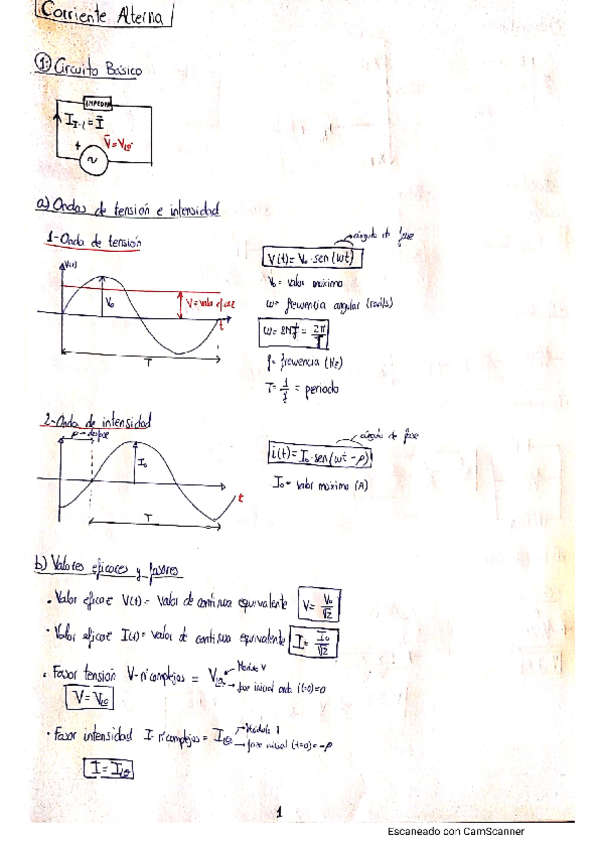 Corriente Alterna
1) Circuito Básico
IMPEDAN
I = Ī
V̄=V
+
~
a) Ondas de tensión e intensidad
1-Onda de tensión
V(t)
V₀
V=valor eficaz
t
T
ángulo de fase
V(t)= V₀·sen(wt)
V₀= valor máximo
w= frecuencia angular (rad/s)
w= 2πf = 2π/T
f= frecuencia (Hz)
T= 1/f = periodo
2-Onda de intensidad
ρ→desfase
I₀
t
T
ángulo de fase
i(t)= I₀·sen(wt-ρ)
I₀= valor máximo (A)
b) Valores eficaces y fasores
· Valor eficaz V(t)= valor de continua equivalente V= V₀/√2
· Valor eficaz I(t)= valor de continua equivalente I= I₀/√2
· Fasor tensión V-nºcomplejos = V Módulo V
→ fase inicial onda (t=0)=0
V=V
· Fasor intensidad I-nºcomplejos= I → Módulo I
→ fase inicial (t=0)=-ρ
I=I
1
Escaneado con CamScanner